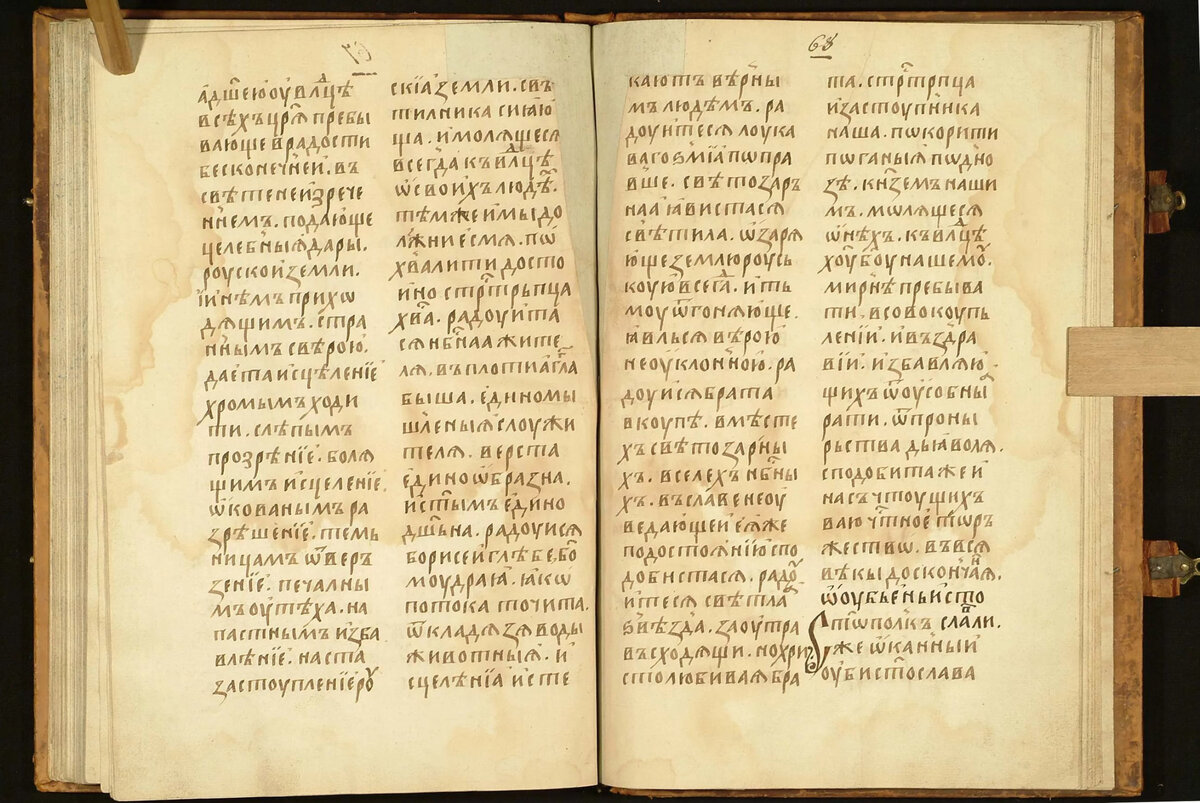 а҆дш҃ею оу҆ влⷣце
всѣхъ цр҃ѧ пребы
вающе в радости
бесконечнеи҆. въ
свѣте неи҆зрече
ннемъ. подающе
целебныѧ дары.
роускои҆ земли.
і҆и҆нѣмъ прихѡ
дѧщимъ. стра
ннымъ с вѣрою.
дае҆та и҆сцѣленїе
хромымъ ходи
ти. слѣпымъ
прозрѣнїе. болѧ
щимъ и҆сцеленїе.
ѡ҆кованымъ ра
зрѣшенїе. темь
ницамъ ѿвер
зенїе. печалны
мъ оу҆тѣха. на
пастнымъ и҆зба
вленїе. на ста
застоупленїе роу
скїа земли. свѣ
тилника сиꙗю
ща. и҆ молѧщесѧ
всегда къ влⷣце
ѡ҆ своихъ людеⷯ.
тѣмже и҆ мы до
лжние҆смѧ. пѡ
хвалити досто
и҆но стрⷭтрьпца
хв҃а. радоуи҆та
сѧ нбⷭнаа жите
лѧ, въ плоти а҆гг҃ла
быша. е҆диномы
шленыѧ слоужи
телѧ. верста
е҆дино ѡ҆бразна,
и҆ ст҃ымъ е҆дино
дш҃ьна. радоуисѧ
борисе и҆ глѣбе, бг҃о
моудраꙗ. ꙗкѡ
потока точита.
ѿ кладѧзѧ воды
животныѧ. и҆
сцелѣнїа и҆сте
68
кають вѣрны
мъ людѣмъ. ра
доуи҆тесѧ лоука
ваго ѕмїа пѡпра
вше. свѣтозарь
наа ꙗвистасѧ
свѣтила. ѡ҆зарѧ
ю҆ще землю роусь
коую всегда. и҆ ть
моу ѿгонѧюще.
ꙗвльсѧ вѣрою
неоуклонною. ра
доуи҆сѧ брата
вкоупѣ. в мѣсте
хъ свѣтозарны
хъ. в селехъ нбⷭны
хъ. въ славе неоу
ведающеи҆ е҆ѧже
по достоѧнїю спо
добистасѧ. радоу
и҆тесѧ свѣтлаѧ
ѕвѣзда. заоутра
въсходѧщи. но хри
столюбиваѧ бра
та. стрⷭтрпца
и҆ застоупника
наша. пѡкорити
пѡганыѧ пѡдно
зѣ. кнземъ наши
мъ. мѡлѧщесѧ
ѡ҆ нѣхъ. къ влⷣце
хоу҃ боу҃ нашемоу.
мирнѣ пребыва
ти, в совокоупь
ленїи. и҆ въ здра
вїи. и҆збавлѧю
щихъ ѿ оу҆собны
рати. ѿ проны
рьства дьаволѧ.
сподобита же и҆
насъ чтоущихъ
ваю чтⷭное торъ
жествѡ. въ всѧ
вѣкы до скончаⷩ҇ѧ.
ѿ оу҆бьеньи ст҃о
с҃тѡполкъ слали.
же ѡ҆канныи҆
оу҆бистослава